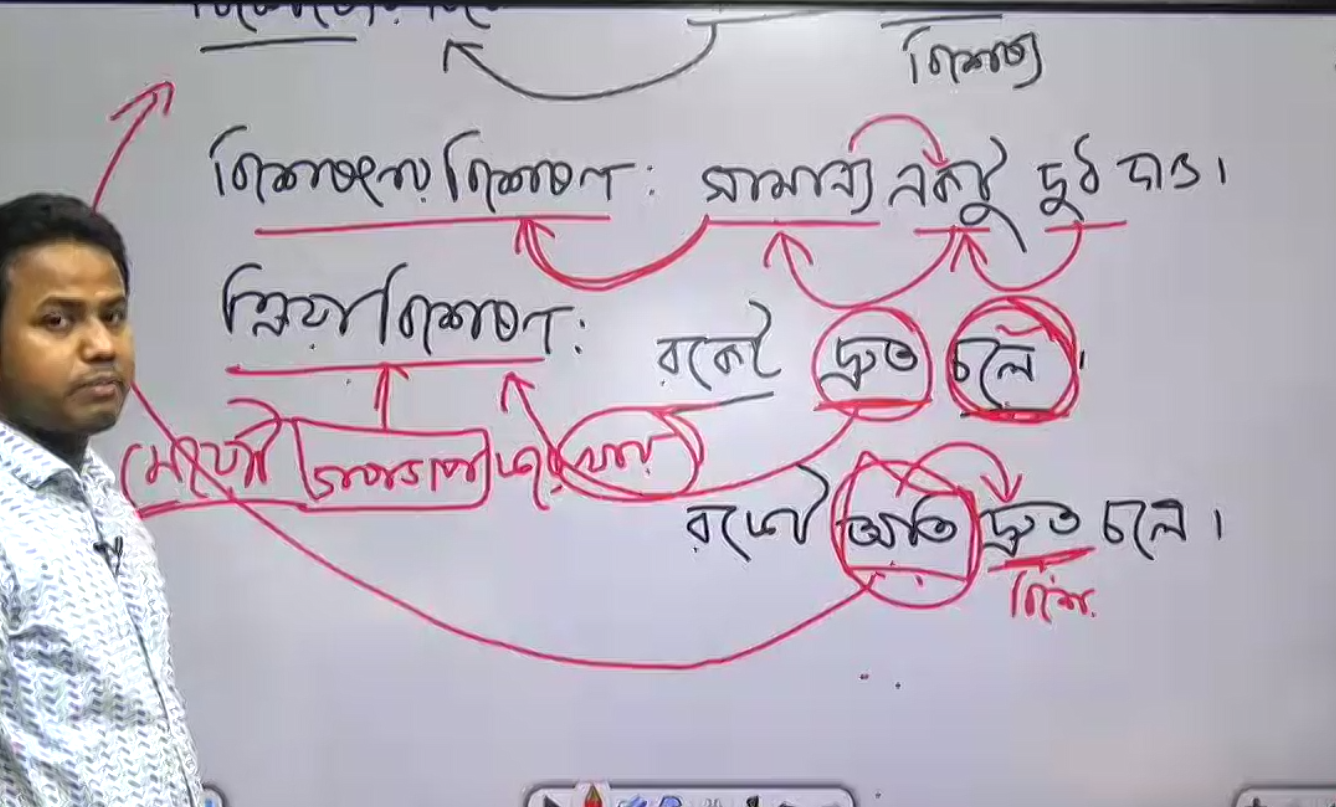 বিশেষ্য
বিশেষণের বিশেষণ: সামান্য একটু দুধ দাও।
ক্রিয়া বিশেষণ: রকেট দ্রুত চলে।
মেয়েটি
রকেট অতি দ্রুত চলে।
বিশে.